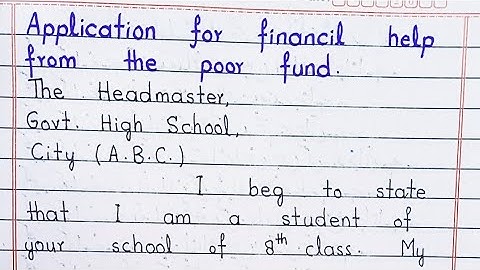 Application for financil help
from the poor fund.
The Headmaster,
Govt. High School,
City (A.B.C.)
I beg to state
that I am a student of
your school of 8th class. My